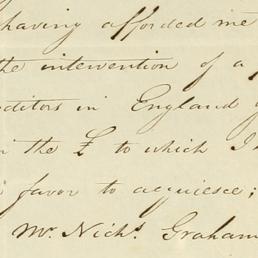 having afforded me
the intervention of a
creditors in England
in the £ to which I
favor to acquiesce;
Mr. Nichs. Graham